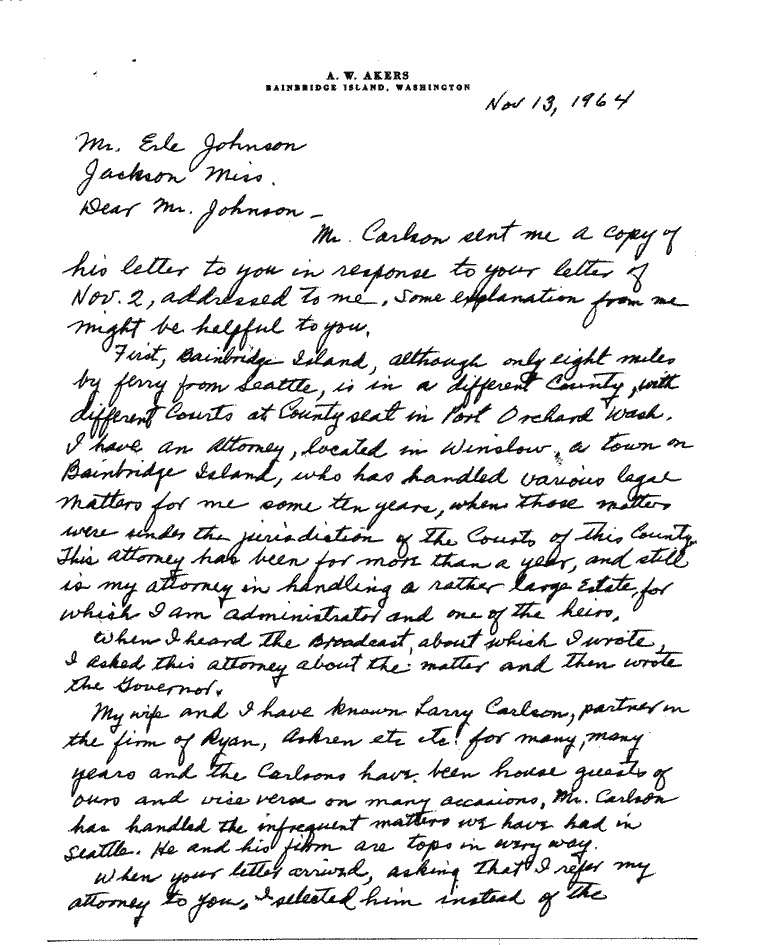 A. W. AKERS
BAINBRIDGE ISLAND, WASHINGTON
Nov 13, 1964
Mr. Erle Johnson
Jackson Miss.
Dear Mr. Johnson -
Mr. Carlson sent me a copy of
his letter to you in response to your letter of
Nov. 2, addressed to me. Some explanation from me
might be helpful to you.
First, Bainbridge Island, although only eight miles
by ferry from Seattle, is in a different County, with
different Courts at County seat in Port Orchard Wash.
I have an Attorney, located in Winslow, a town on
Bainbridge Island, who has handled various legal
matters for me some ten years, when those matters
were under the jurisdiction of the Courts of this County.
This attorney has been for more than a year, and still
is my attorney in handling a rather large Estate, for
which I am administrator and one of the heirs.
When I heard the Broadcast, about which I wrote,
I asked this attorney about the matter and then wrote
the Governor.
My wife and I have known Larry Carlson, partner in
the firm of Ryan, Askren etc etc! for many, many
years and the Carlsons have been house guests of
ours and vice versa on many occasions, Mr. Carlson
has handled the infrequent matters we have had in
Seattle. He and his firm are tops in every way.
When your letter arrived, asking that I refer my
attorney to you, I selected him instead of the